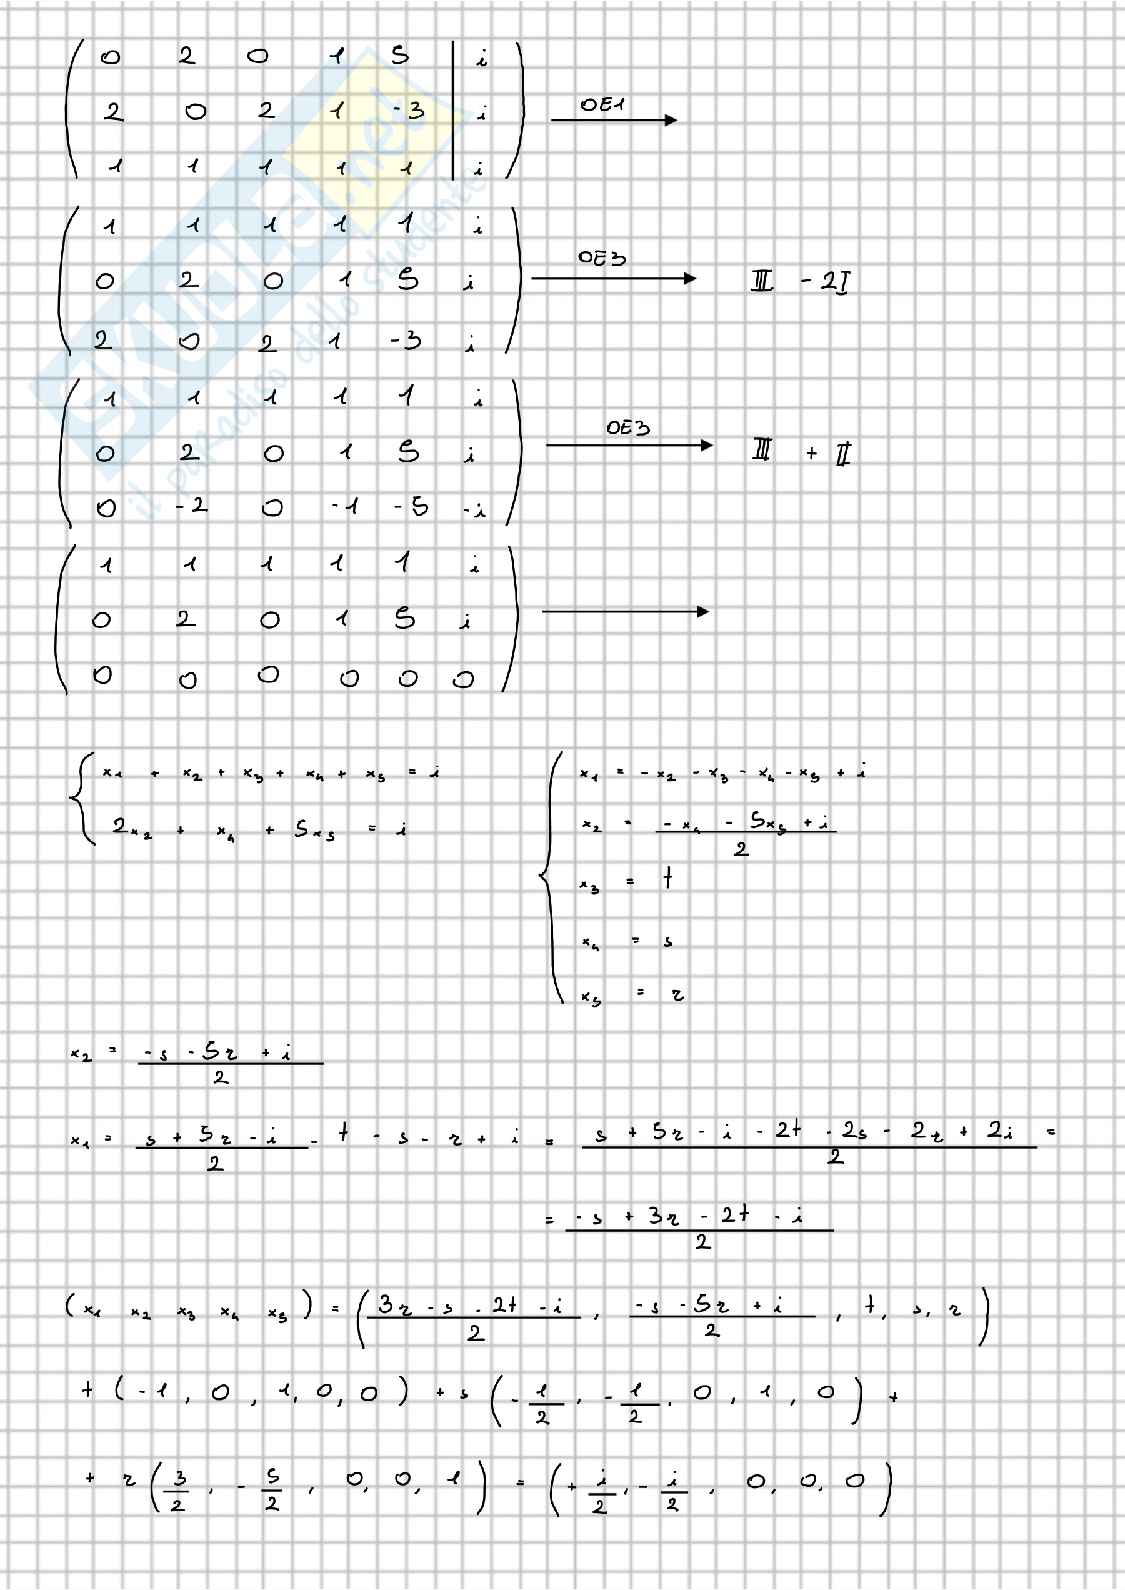 0 2 0 1 5 | i
2 0 2 1 -3 | i
1 1 1 1 1 | i
OE1
1 1 1 1 1 i
0 2 0 1 5 i
2 0 2 1 -3 i
OE3
III - 2I
1 1 1 1 1 i
0 2 0 1 5 i
0 -2 0 -1 -5 -i
OE3
III + II
1 1 1 1 1 i
0 2 0 1 5 i
0 0 0 0 0 0
x₁ + x₂ + x₃ + x₄ + x₅ = i
2x₂ + x₄ + 5x₅ = i
x₁ = -x₂ - x₃ - x₄ - x₅ + i
x₂ = (-x₄ - 5x₅ + i)/2
x₃ = t
x₄ = s
x₅ = r
x₂ = (-s - 5r + i)/2
x₁ = (s + 5r - i)/2 - t - s - r + i = (s + 5r - i - 2t - 2s - 2r + 2i)/2 =
= (-s + 3r - 2t - i)/2
(x₁ x₂ x₃ x₄ x₅) = ((3r - s - 2t - i)/2, (-s - 5r + i)/2, t, s, r)
t (-1, 0, 1, 0, 0) + s (-1/2, -1/2, 0, 1, 0) +
+ r (3/2, -5/2, 0, 0, 1) = (+i/2, -i/2, 0, 0, 0)
SKUOLA.net
il paradiso dello studente